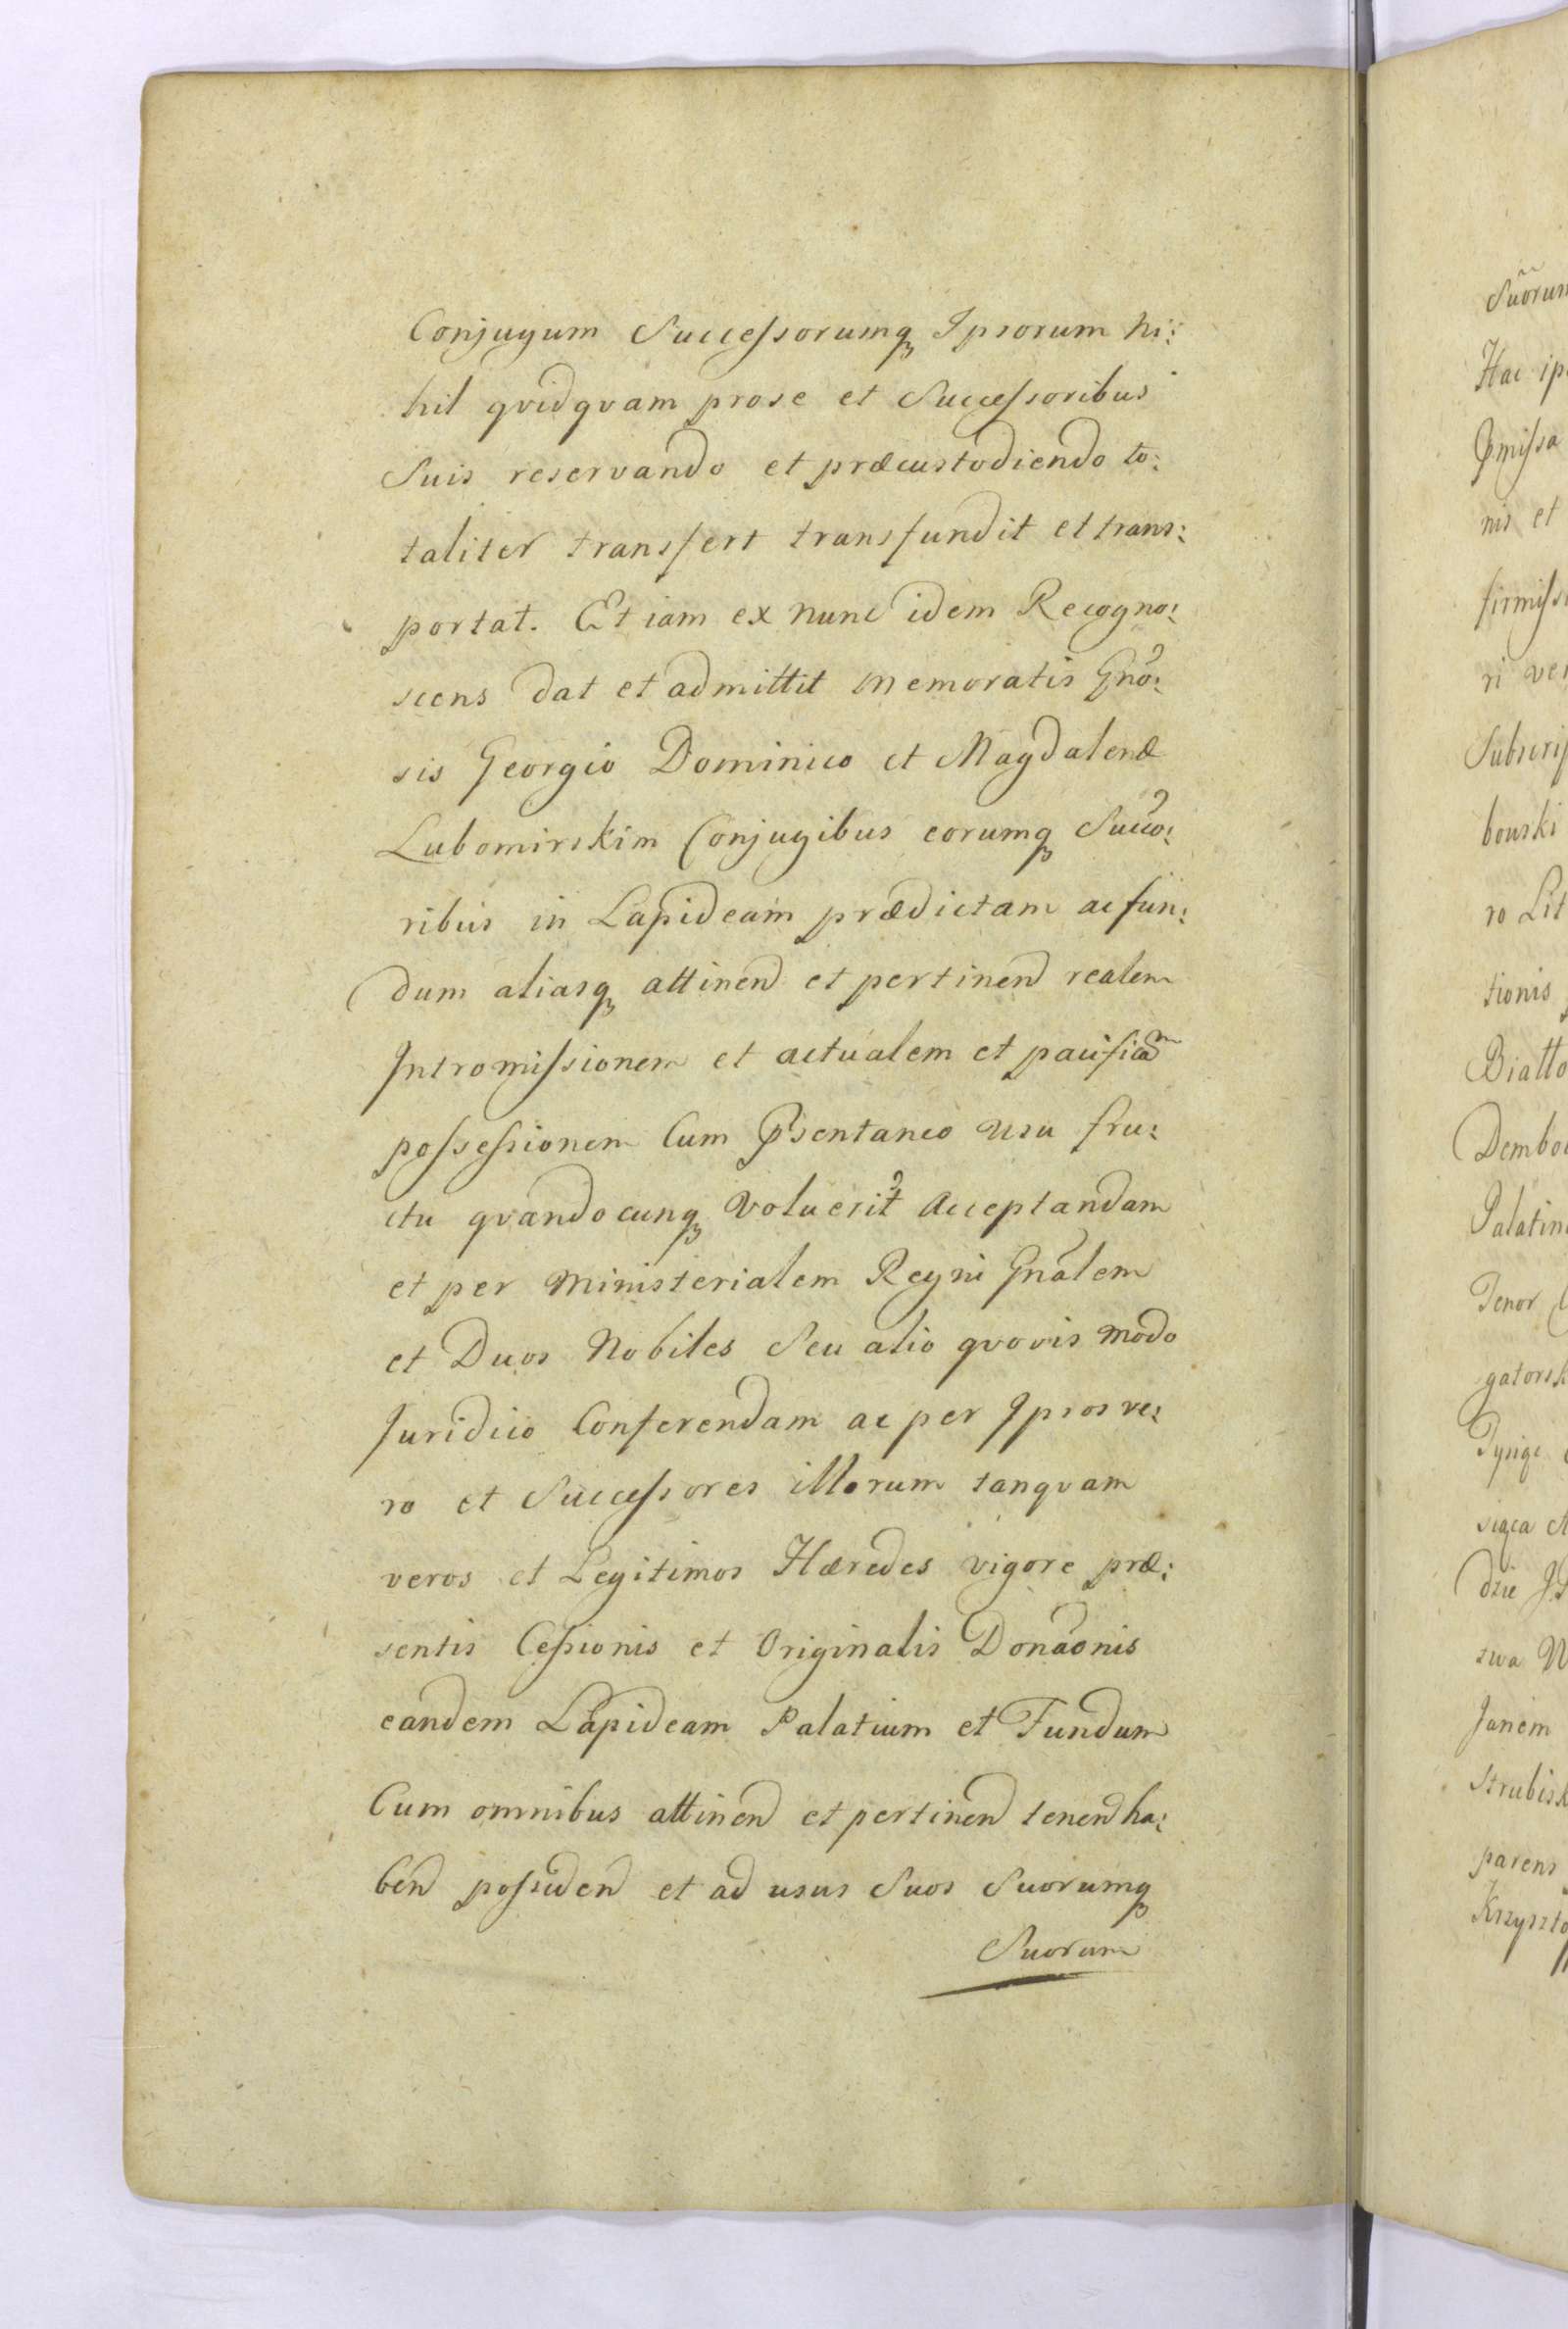 Conjugum Successorumq Ipsorum ni:
hil qvidqvam prose et Successoribus
Suis reservando et præcustodiendo to:
taliter transfert transfundit et trans:
portat. Et iam ex nunc idem Recogno:
scens dat et admittit memoratis Gno:
sis Georgio Dominico et Magdalenæ
Lubomirskim Conjugibus eorumq Succo:
ribus in Lapideam prædictam ac fun:
dum aliasq attinend et pertinend realem
Intromissionem et actualem et pacificam
possessionem Cum Psentaneo usu fru:
ctu qvandocunq voluerit Acceptandam
et per Ministerialem Regni Gnalem
et Duos Nobiles Seu alio qvovis modo
Juridico Conferendam ac per Ipsos ve:
ro et Successores illorum tanqvam
veros et Legitimos Hæredes vigore præ:
sentis Cessionis et Originalis Donaonis
eandem Lapideam Palatium et Fundum
Cum omnibus attinend et pertinend tenend ha:
bend possidend et ad usus Suos Suorumq
Suorum
Suorum
Hac ip
Pmissa
nis et
firmiss
ri ver
Subscrip
bowski
ro Lit
tionis
Biallo
Dembo
Palatin
Tenor
gatorsk
Tysiąc
siąca
dzie
twa W
Janem
Strubisk
parens
Krzyszto